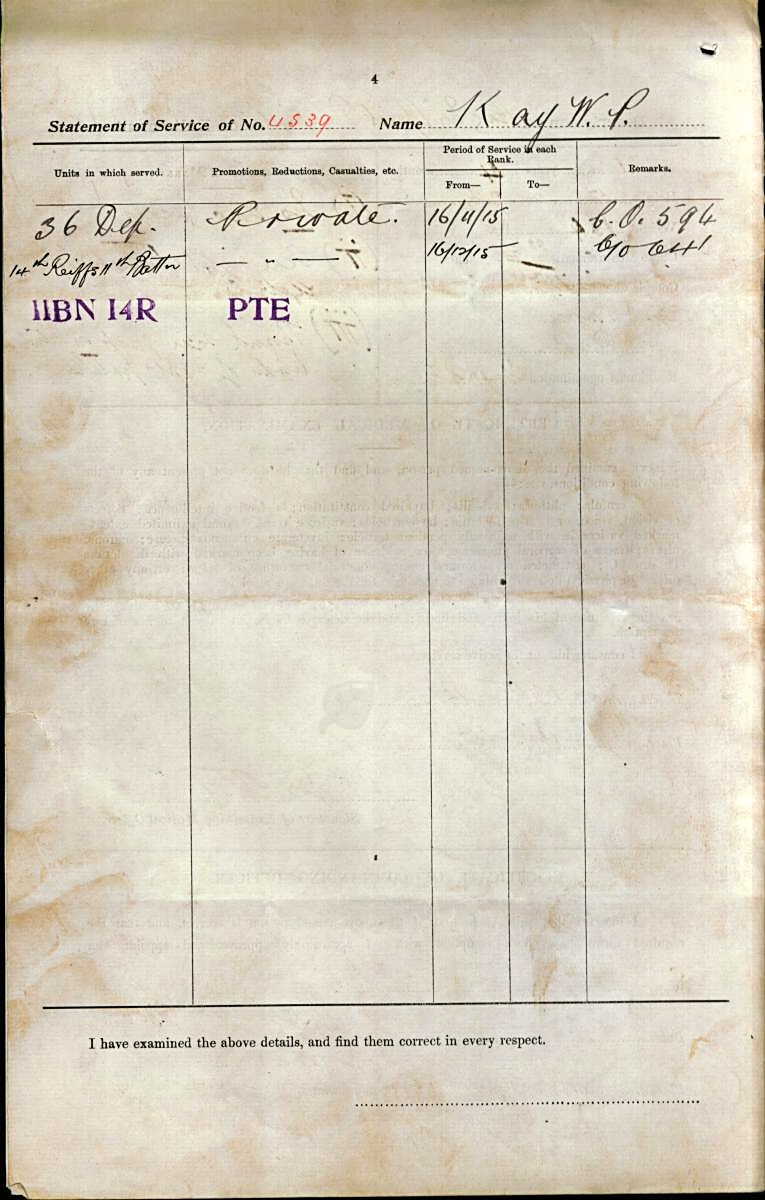 4
Statement of Service of No. 4539 Name Kay W. P.
Units in which served. Promotions, Reductions, Casualties, etc. Period of Service in each Rank. Remarks.
From— To—
36 Dep. Private. 16/11/15 C.O. 594
14th Reiffs 11th Battn — " — 16/12/15 — C/O 641
11BN 14R PTE
I have examined the above details, and find them correct in every respect.